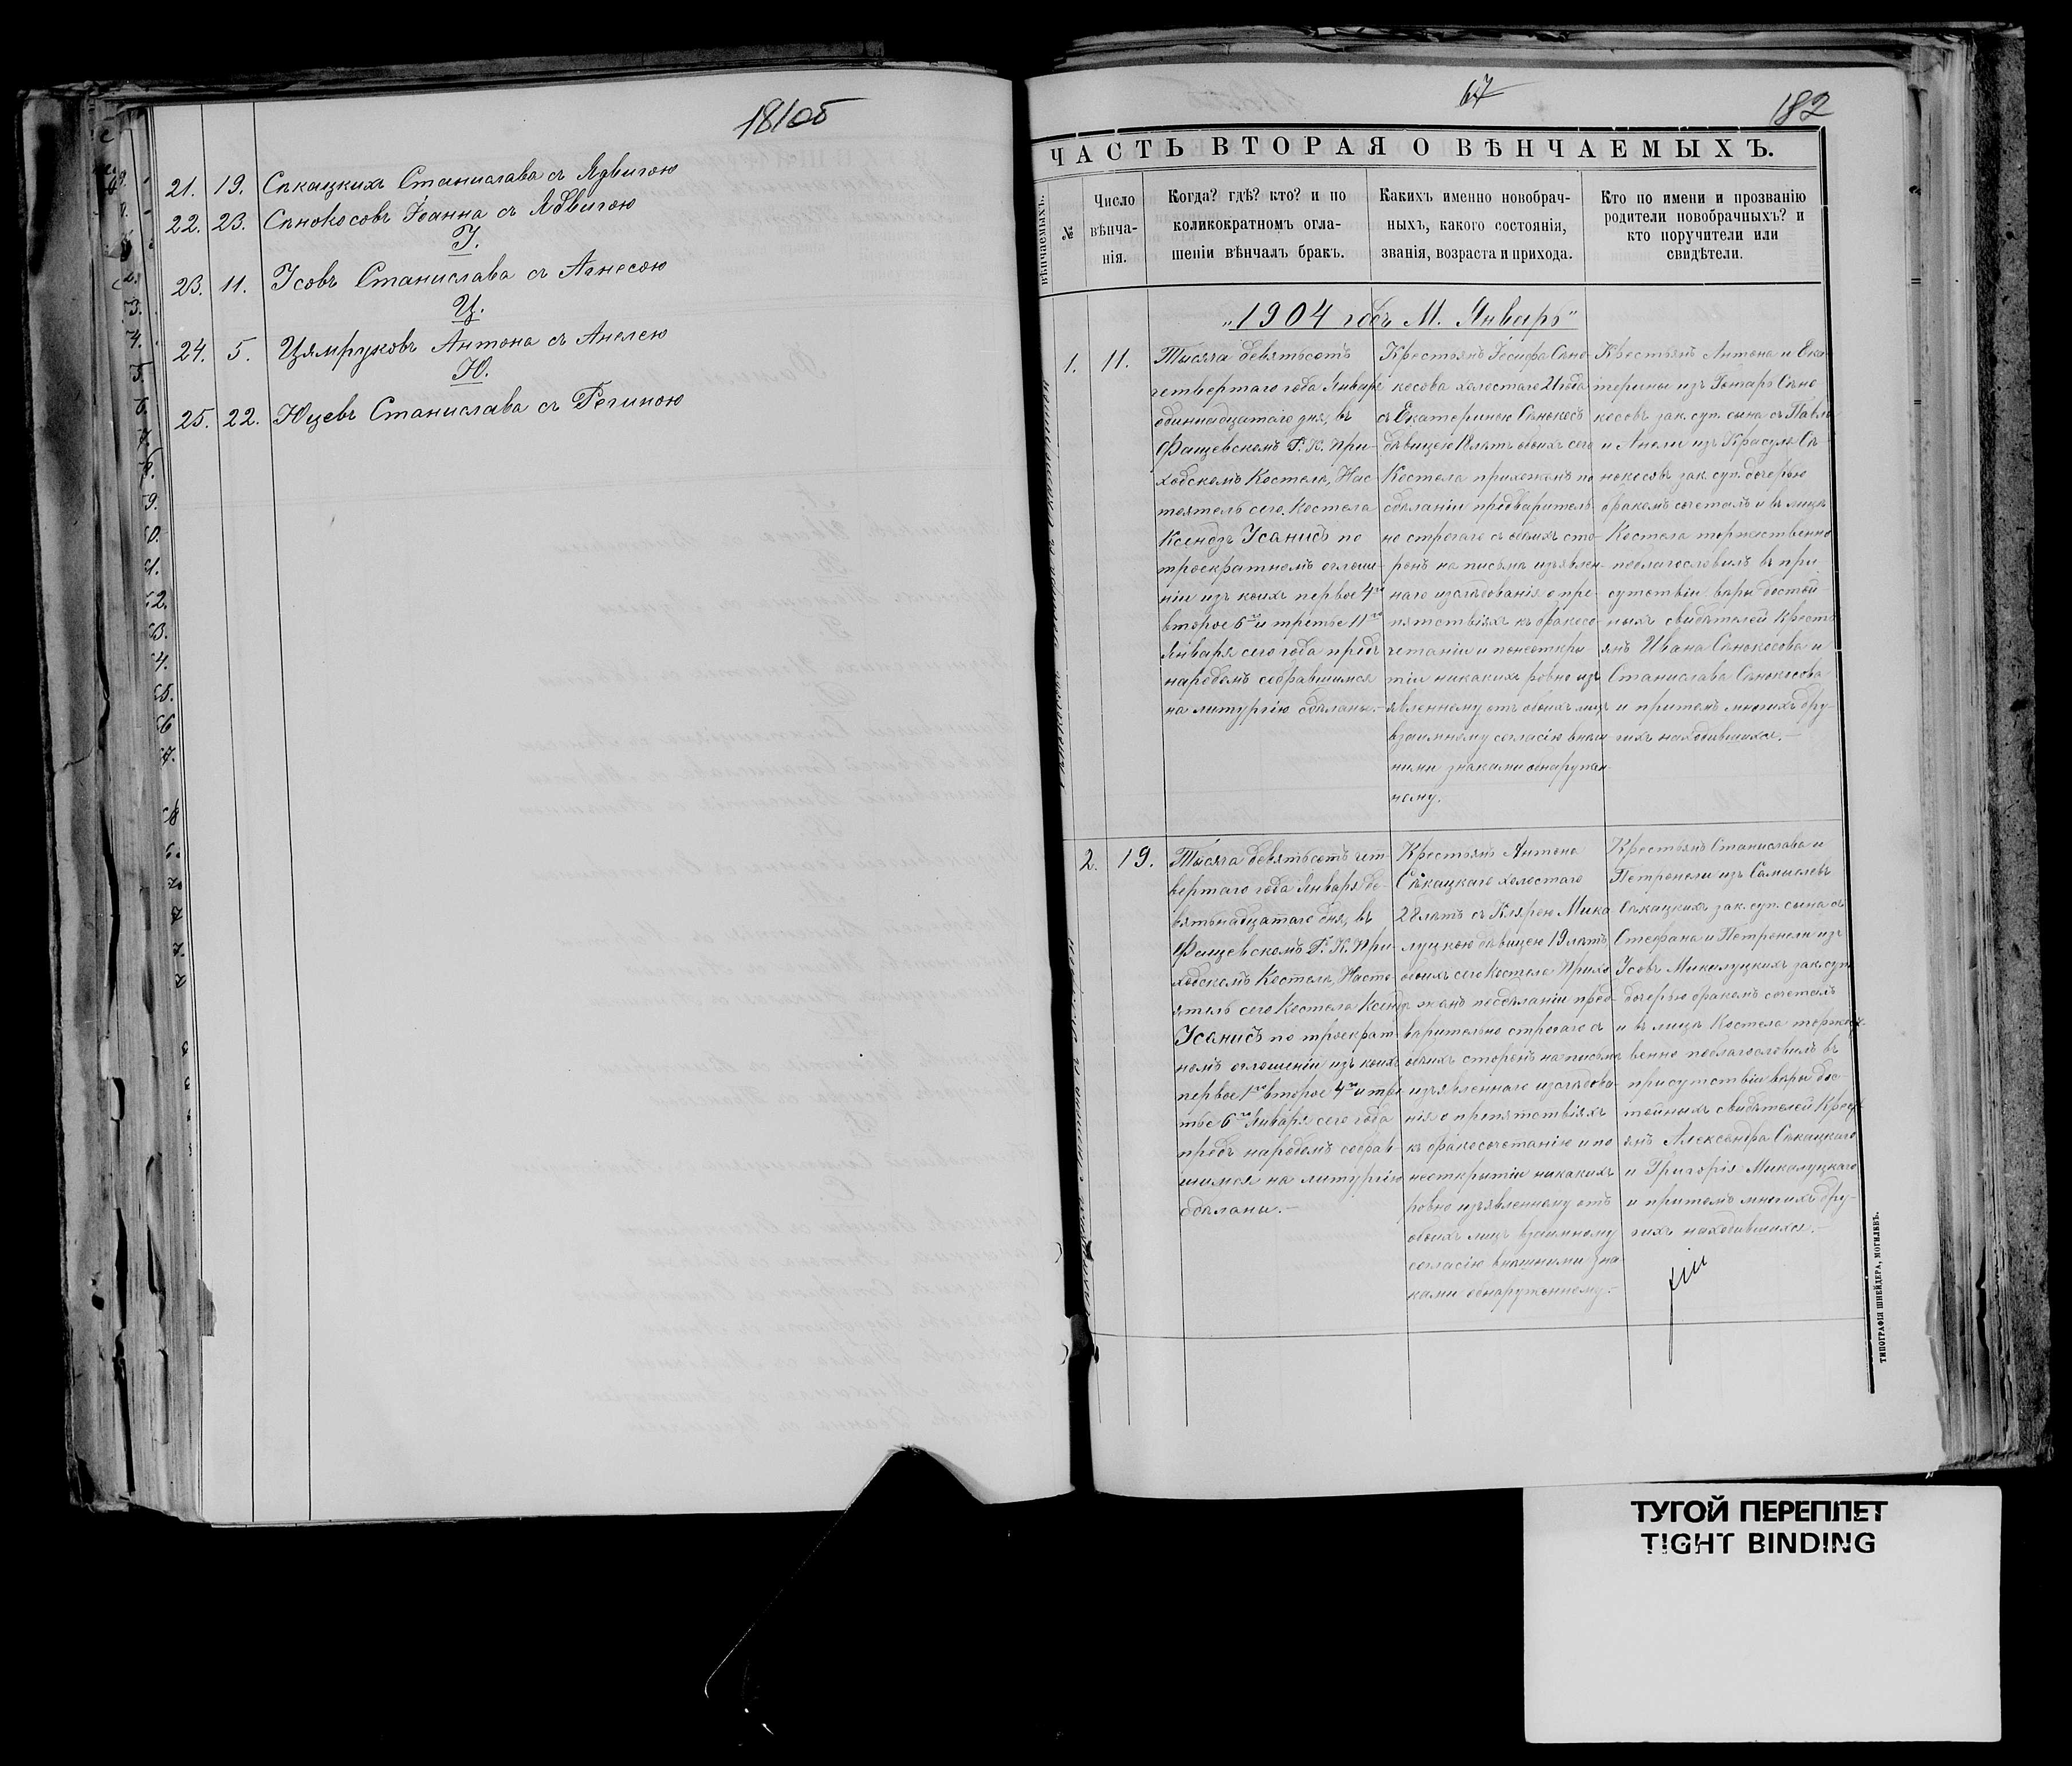 181об
21. 19. Сѣкацкихъ Станислава съ Ядвигою
22. 23. Сѣнокосовъ Іоанна съ Ядвигою
У.
23. 11. Усовъ Станислава съ Агнесою
Ц.
24. 5. Цямруковъ Антона съ Анелею
Ю.
25. 22. Юцевъ Станислава съ Региною
67
182
ЧАСТЬ ВТОРАЯ О ВѢНЧАЕМЫХЪ.
№ вѣнчаемыхъ.
Число
вѣнча-
нія.
Когда? гдѣ? кто? и по
коликократномъ огла-
шеніи вѣнчалъ бракъ.
Какихъ именно новобрач-
ныхъ, какого состоянія,
званія, возраста и прихода.
Кто по имени и прозванію
родители новобрачныхъ? и
кто поручители или
свидѣтели.
„1904 годъ М. Январь"
1.
11.
Тысяча девятьсотъ
четвертаго года Января
одиннадцатаго дня, въ
Фащевскомъ Р. К. При-
ходскомъ Костелѣ, Нас-
тоятель сего Костела
Ксендзъ Усанисъ по
троекратномъ оглаше-
ніи изъ коихъ первое 4го
второе 6го и третье 11го
Января сего года предъ
народомъ собравшимся
на литургію сдѣланы.-
Крестьянъ Іосифа Сѣно
косова холостаго 21 года
съ Екатериною Сѣнокосъ
дѣвицею 18 лѣтъ обоихъ сего
Костела прихожанъ по
сдѣланіи предваритель
но строгаго съ обоихъ сто-
ронъ на письмѣ изъявлен-
наго изслѣдованія о пре-
пятствіяхъ къ бракосо-
четанію и понеоткры
тіи никакихъ ровно изъ
явленному отъ обоихъ лицъ
взаимному согласію внѣш
ними знаками обнаружен-
ному.
Крестьянъ Антона и Ека
терины изъ Гонтарь Сѣно
косовъ зак. суп. сына съ Павла
и Анели изъ Красуля Сѣ
нокосовъ зак. суп. дочерью
бракомъ сочеталъ и въ лицѣ
Костела торжественно
поблагословилъ въ при
сутствіи вѣры достой
ныхъ свидѣтелей Кресть
янъ Ивана Сѣнокосова и
Станислава Сѣнокосова
и притомъ многихъ дру-
гихъ находившихся.-
2.
19.
Тысяча девятьсотъ чет-
вертаго года Января де-
вятнадцатаго дня, въ
Фащевскомъ Р. К. При-
ходскомъ Костелѣ, Насто
ятель сего Костела Ксендзъ
Усанисъ по троекрат-
номъ оглашеніи изъ коихъ
первое 1го второе 4го и тре
тье 6го Января сего года
предъ народомъ собрав-
шимся на литургію
сдѣланы.-
Крестьянъ Антона
Сѣкацкаго холостаго
28 лѣтъ съ Клярою Мика
луцкою дѣвицею 19 лѣтъ
обоихъ сего Костела Прихо
жанъ посдѣланіи пред-
варительно строгаго съ
обоихъ сторонъ на письмѣ
изъявленнаго изслѣдова-
нія о препятствіяхъ
къ бракосочетанію и по
неоткрытіи никакихъ
ровно изъявленному отъ
обоихъ лицъ взаимному
согласію внѣшними зна
ками обнаруженному.-
Крестьянъ Станислава и
Петронели изъ Самыслевъ
Сѣкацкихъ зак. суп. сына съ
Стефана и Петронели изъ
Усовъ Микалуцкихъ зак. суп.
дочерью бракомъ сочеталъ
и въ лицѣ Костела торжест-
венно поблагословилъ въ
присутствіи вѣры дос-
тойныхъ свидѣтелей Кресть
янъ Александра Сѣкацкаго
и Григорія Микалуцкаго
и притомъ многихъ дру-
гихъ находившихся.-
ТИПОГРАФІЯ ШНЕЙДЕРА, МОГИЛЕВЪ.
ТУГОЙ ПЕРЕПЛЕТ
TIGHT BINDING